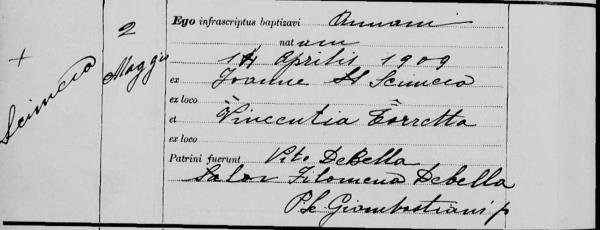 +
Scimeca
2
Maggio
Ego infrascriptus baptizavi Annam
nat am
14 Aprilis 1909
ex Joanne Scimeca
ex loco
et Vincentia Torretta
ex loco
Patrini fuerunt Vito DeBella
Filomena Debella
P. L. Giambastiani p